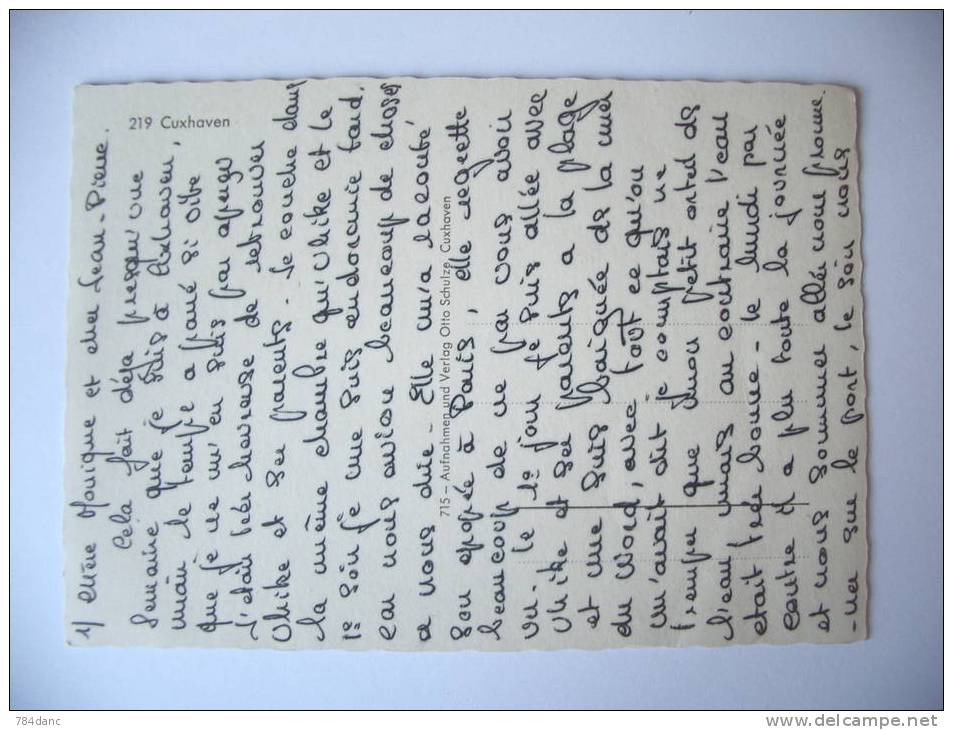 219 Cuxhaven
1/ Chère Monique et cher Jean-Pierre.
Cela fait déjà presqu'une
semaine que je suis à Cuxhaven,
mais le temps a passé si vite
que je ne m'en suis pas aperçu
J'étais très heureuse de retrouver
Ulrike et ses parents. Je couche dans
la même chambre qu'Ulrike et le
1º soir je me suis endormie tard.
car nous avions beaucoup de choses
a nous dire. Elle m'a raconté
son épopée à Paris, elle regrette
beaucoup de ne pas vous avoir
vu. le 1º jour je suis allée avec
Ulrike et ses parents a la plage
et me suis baignée ds la mer
du Nord, avec tout ce qu'on
m'avait dit je comptais ne
tremper que mon petit orteil ds
l'eau mais au contraire l'eau
était très bonne - le lundi par
contre il a plu toute la journée
et nous sommes allés nous prome-
-ner sur le port, le soir nous
715 – Aufnahmen und Verlag Otto Schulze, Cuxhaven
784danc
www.delcampe.net